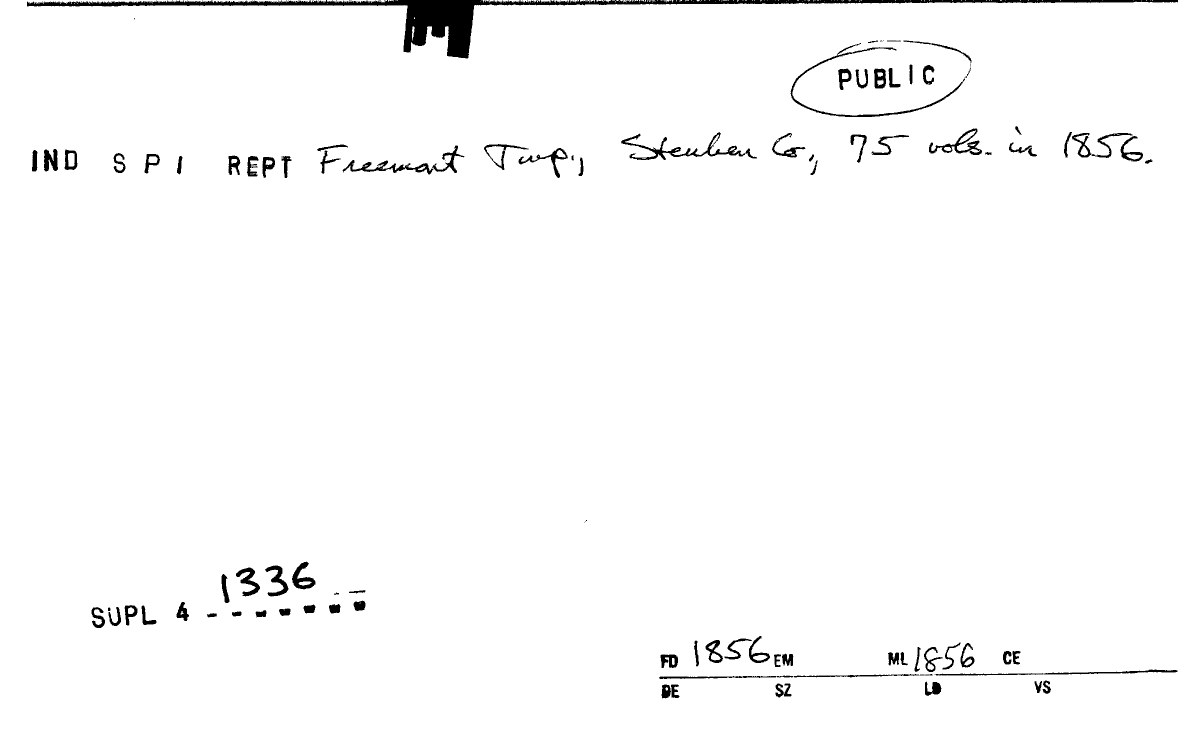 PUBLIC
IND S P I REPT Freemont Twp., Steuben Co., 75 vols. in 1856.
1336
SUPL 4 - - - - - - -
FD 1856 EM ML 1856 CE
DE SZ LD VS